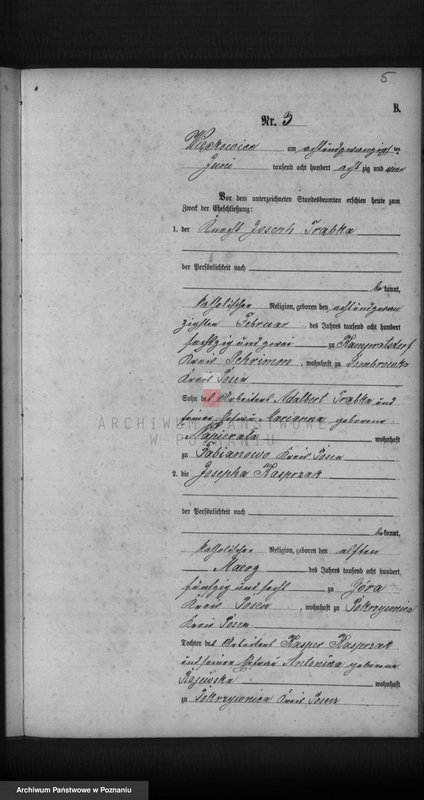 5
B.
Nr. 3
am achtundzwanzigsten
Juni tausend acht hundert acht zig und vier
Vor dem unterzeichneten Standesbeamten erschien heute zum
Zweck der Eheschließung:
1. der Knecht Joseph Trabka
der Persönlichkeit nach
be kannt,
katholischer Religion, geboren den achtundzwan
zigsten Februar des Jahres tausend acht hundert
sechzig und zwei zu
Kreis Schrimm, wohnhaft zu
Kreis Posen
Sohn des Arbeiters Adalbert Trabka und
seiner Ehefrau Marianna geborene
Napierala wohnhaft
zu Fabianowo Kreis Posen
2. die Josepha Kasprzak
der Persönlichkeit nach
be kannt,
katholischer Religion, geboren den elften
Maerz des Jahres tausend acht hundert
fünfzig und sechs zu Góra
Kreis Posen, wohnhaft zu Pokrzywnica
Kreis Posen
Tochter des Arbeiters Kasper Kasprzak
und seiner Ehefrau Antonina geborene
wohnhaft
zu Pokrzywnica Kreis Posen
ARCHIWUM PAŃSTWOWE
W POZNANIU
Archiwum Państwowe w Poznaniu